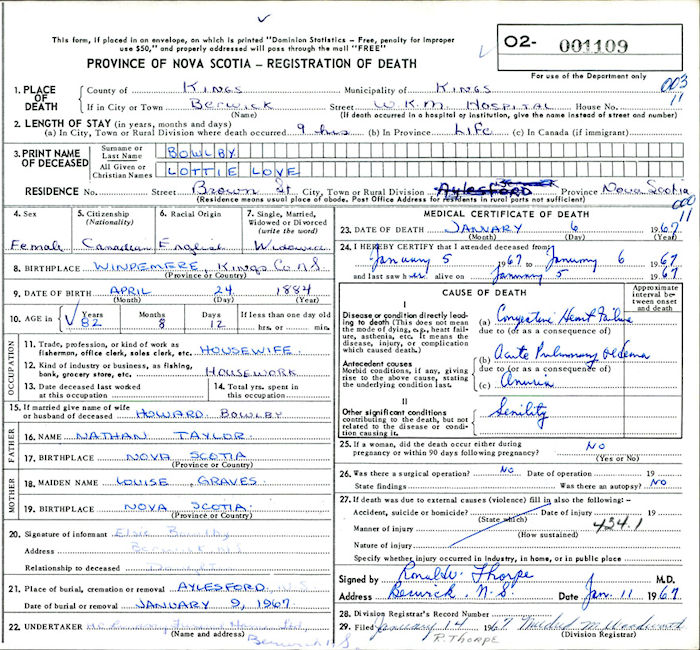 This form, if placed in an envelope, on which is printed "Dominion Statistics - Free, penalty for improper
use $50," and properly addressed will pass through the mail "FREE"
O2- 001109
For use of the Department only
PROVINCE OF NOVA SCOTIA - REGISTRATION OF DEATH
1. PLACE OF DEATH
County of KINGS Municipality of KINGS 003
If in City or Town BERWICK Street W.K.M. HOSPITAL House No. 11
(Name) (If death occurred in a hospital or institution, give the name instead of street and number)
2. LENGTH OF STAY (in years, months and days)
(a) In City, Town or Rural Division where death occurred 9 hrs (b) In Province LIFE (c) In Canada (if immigrant)
3. PRINT NAME OF DECEASED
Surname or Last Name BOWLBY
All Given or Christian Names LOTTIE LOVE
RESIDENCE No. Street Brown St City, Town or Rural Division Berwick AYLESFORD Province Nova Scotia 000
(Residence means usual place of abode. Post Office Address for residents in rural parts not sufficient) 11
4. Sex 5. Citizenship (Nationality) 6. Racial Origin 7. Single, Married, Widowed or Divorced (write the word)
Female Canadian English Widowed
8. BIRTHPLACE WINDEMERE, Kings Co N.S
(Province or Country)
9. DATE OF BIRTH APRIL 24 1884
(Month) (Day) (Year)
10. AGE in Years 82 Months 8 Days 12 If less than one day old hrs. or min.
OCCUPATION
11. Trade, profession, or kind of work as fishermon, office clerk, sales clerk, etc. HOUSEWIFE
12. Kind of industry or business, as fishing, bank, grocery store, etc. HOUSEWORK
13. Date deceased last worked at this occupation 14. Total yrs. spent in this occupation
15. If married give name of wife or husband of deceased HOWARD BOWLBY
FATHER
16. NAME NATHAN TAYLOR
17. BIRTHPLACE NOVA SCOTIA
(Province or Country)
MOTHER
18. MAIDEN NAME LOUISE GRAVES
19. BIRTHPLACE NOVA SCOTIA
(Province or Country)
20. Signature of informant Elsie Bowlby
Address Berwick N.S
Relationship to deceased
21. Place of burial, cremation or removal AYLESFORD N.S
Date of burial or removal JANUARY 9, 1967
22. UNDERTAKER
(Name and address) Berwick N.S.
MEDICAL CERTIFICATE OF DEATH
23. DATE OF DEATH JANUARY 6 1967
(Month) (Day) (Year)
24. I HEREBY CERTIFY that I attended deceased from:
January 5 1967 to January 6 1967
and last saw her alive on January 5 1967
CAUSE OF DEATH
Approximate interval between onset and death
I
Disease or condition directly leading to death (This does not mean the mode of dying, e.g., heart failure, asthenia, etc. It means the disease, injury, or complication which caused death.)
(a) Congestive Heart Failure
due to (or as a consequence of)
Antecedent causes
Morbid conditions, if any, giving rise to the above cause, stating the underlying condition last.
(b) Acute Pulmonary oedema
due to (or as a consequence of)
(c) Anuria
II
Other significant conditions contributing to the death, but not related to the disease or condition causing it.
Senility
25. If a woman, did the death occur either during pregnancy or within 90 days following pregnancy? NO
(Yes or No)
26. Was there a surgical operation? NO Date of operation 19
State findings Was there an autopsy? NO
27. If death was due to external causes (violence) fill in also the following:-
Accident, suicide or homicide? Date of injury 19
(State which) 434.1
Manner of injury
(How sustained)
Nature of injury
Specify whether injury occurred in industry, in home, or in public place
Signed by Ronald W. Thorpe M.D.
Address Berwick, N.S. Date Jan. 11 1967
28. Division Registrar's Record Number
29. Filed January 14 1967
R. THORPE (Division Registrar)